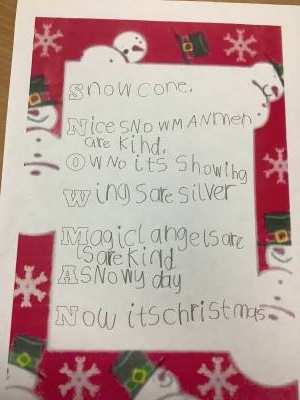 Snowcone.
NicesNowMANmen
are kind.
OWNo its Showing
WingSare silver
Magicl angelsare
isare kind
ASNowy day
Now itschristmas